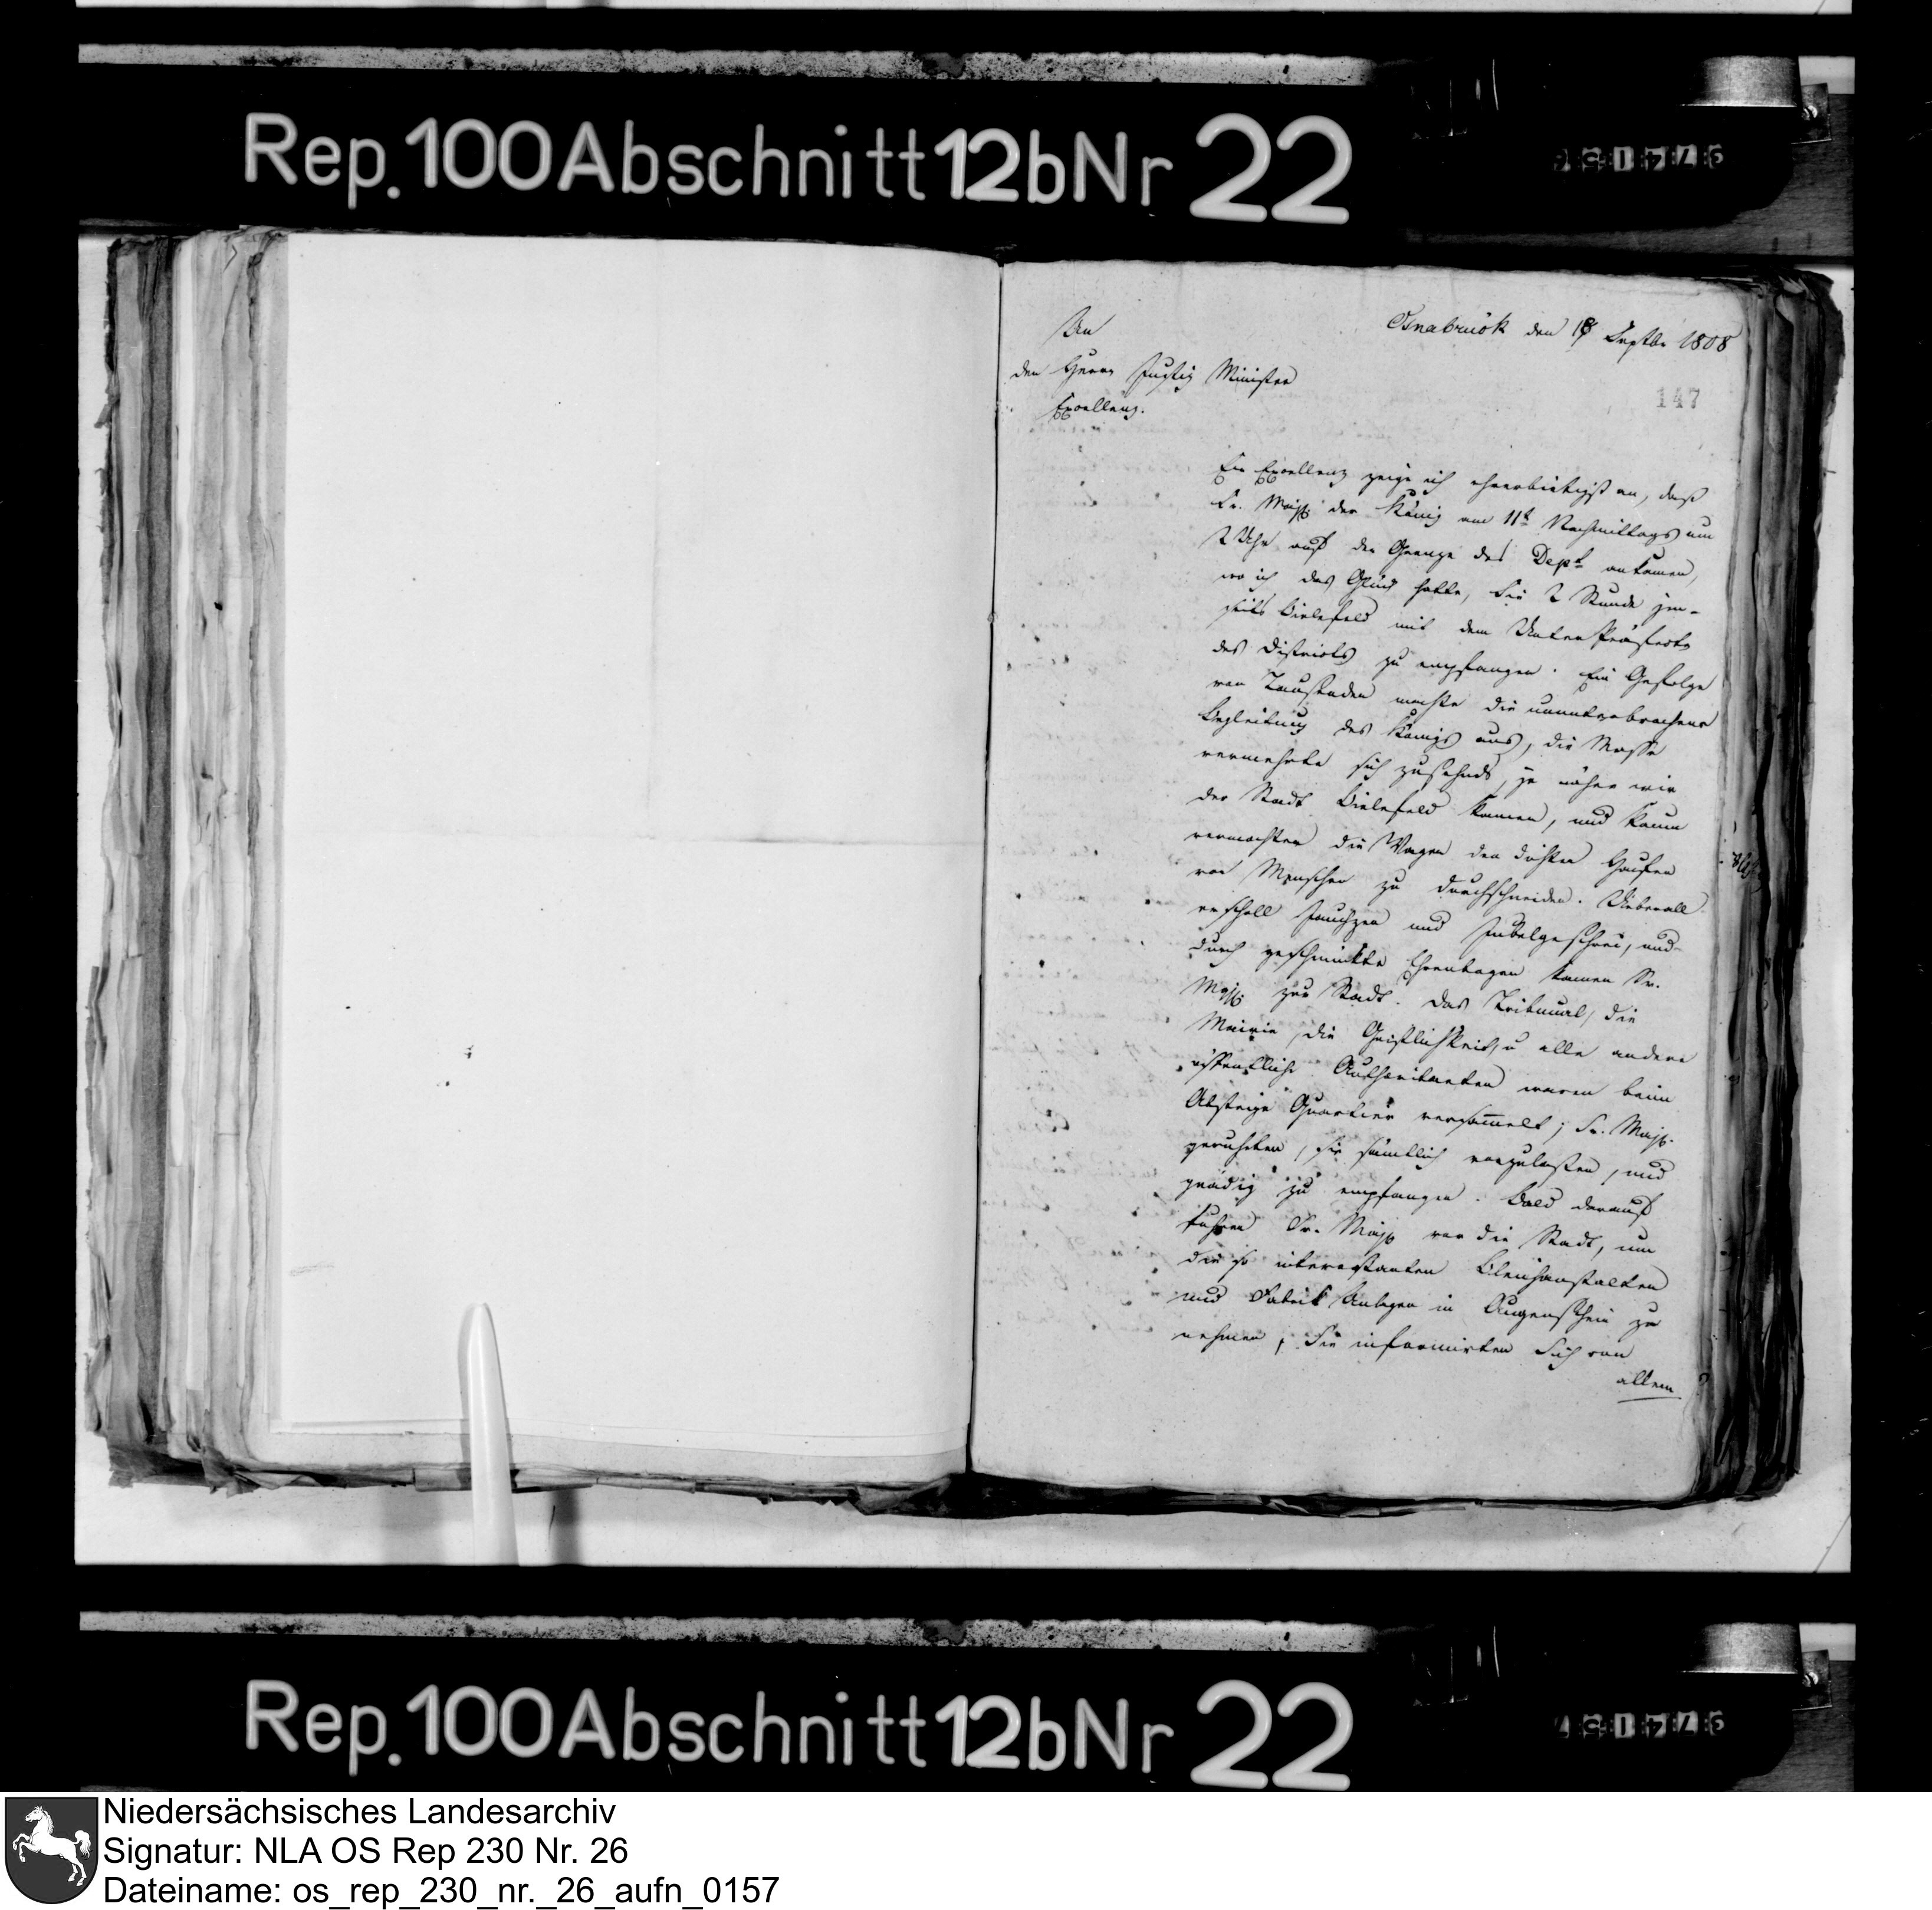 Rep. 100 Abschnitt 12b Nr 22
An
den Herrn Justiz Minister
Excellenz.
Osnabruök den 18 Septbr 1808
147
Ew Excellenz zeige ich ehrerbietigst an, daß
Sr. Majst. der König am 11t Nachmittags um
2 Uhr auf der Grenze des Dept ankamen,
wo ich das Glück hatte, Sie 2 Stunde jen-
seits Bielefeld mit dem Unter Präfecte
des Districts zu empfangen. Ein Gefolge
von Tausenden machte die ununterbrochene
Begleitung des Königs aus, die Masse
vermehrte sich zusehends, je näher wir
der Stadt Bielefeld kamen, und kaum
vermochten die Wagen den dichten Haufen
von Menschen zu durchschneiden. Ueberall
erscholl Jauchzen und Jubelgeschrei, und
durch geschmückte Ehrenbogen kamen Sr.
Majst. zur Stadt. Das Tribunal, die
Mairie, die Geistlichkeit, u alle andere
öffentliche Authoritaeten waren beim
Absteige Quartier versam̅elt; Sr. Majst.
geruheten, sie sämtlich vorzulassen, und
gnädig zu empfangen. Bald darauf
fuhren Sr. Majst vor die Stadt, um
die so interessanten Bleichanstalten
und Fabrik Anlagen in Augenschein zu
nehmen; Sie informirten Sich von
allem
Rep. 100 Abschnitt 12b Nr 22
Niedersächsisches Landesarchiv
Signatur: NLA OS Rep 230 Nr. 26
Dateiname: os_rep_230_nr._26_aufn_0157